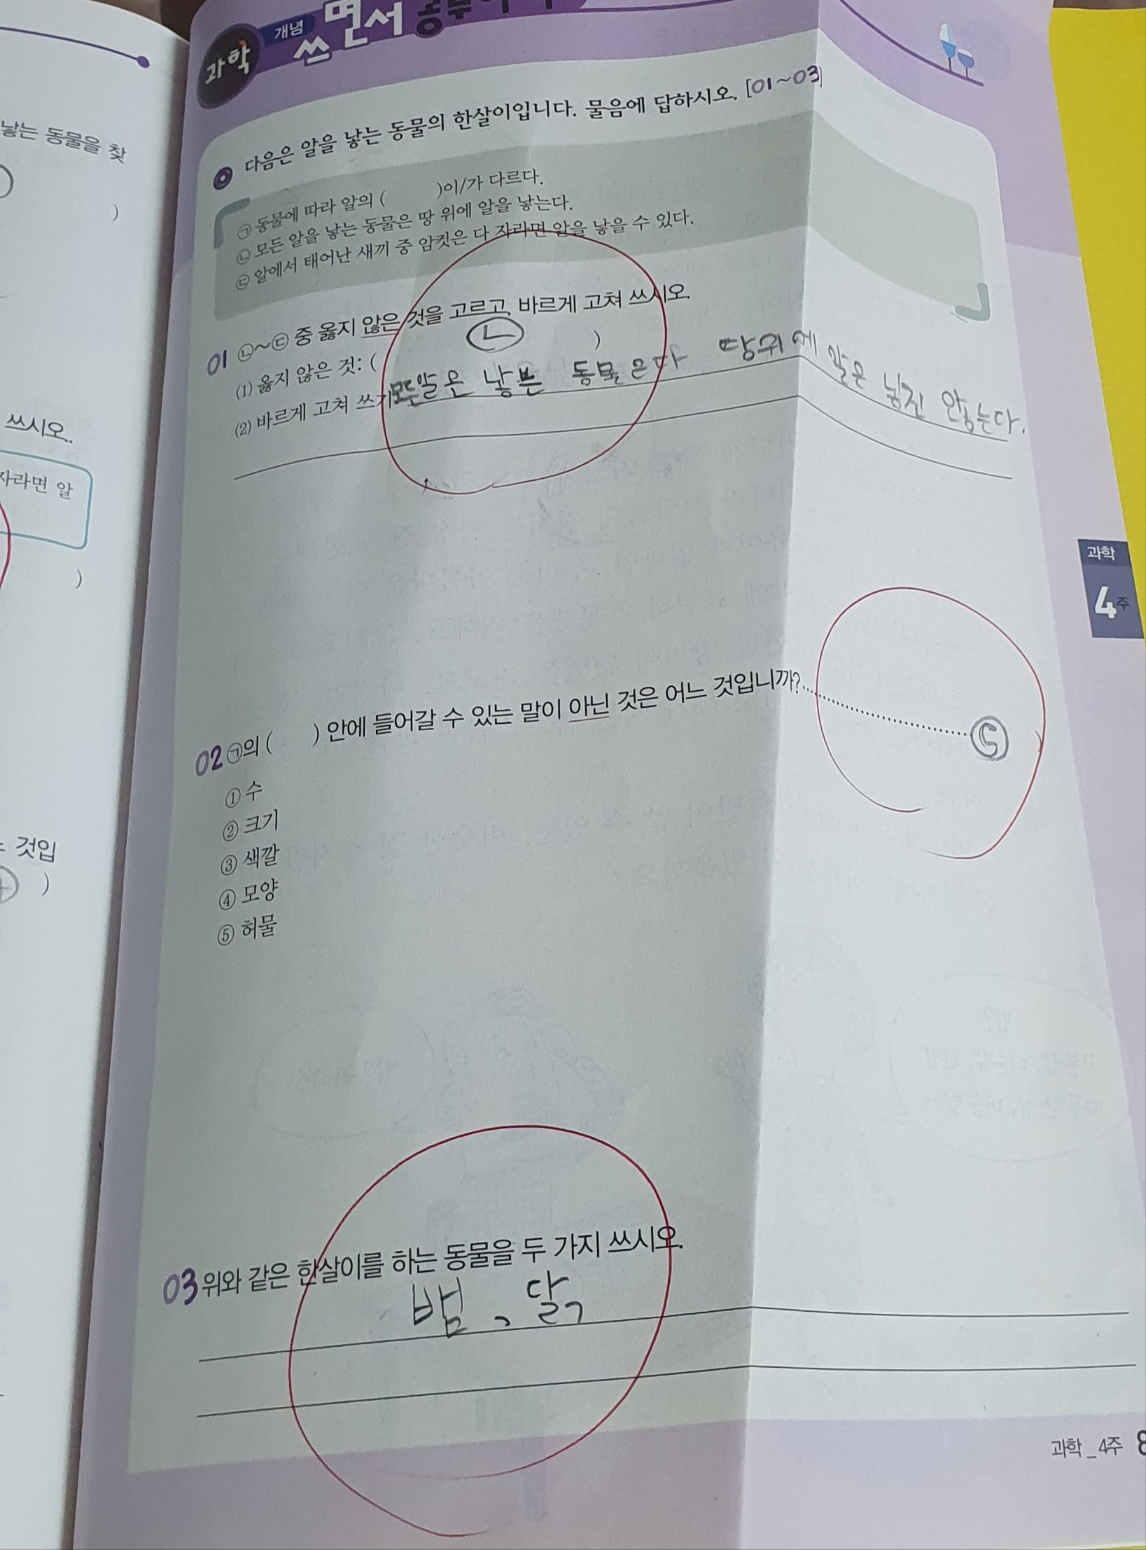 낳는 동물을 찾
)
쓰시오.
자라면 알
)
것입
)
과학 개념 쓰면서
다음은 알을 낳는 동물의 한살이입니다. 물음에 답하시오. [01~03]
㉠ 동물에 따라 알의 ( )이/가 다르다.
㉡ 모든 알을 낳는 동물은 땅 위에 알을 낳는다.
㉢ 알에서 태어난 새끼 중 암컷은 다 자라면 알을 낳을 수 있다.
01 ㉡~㉢ 중 옳지 않은 것을 고르고, 바르게 고쳐 쓰시오.
(1) 옳지 않은 것: ( ㉡ )
(2) 바르게 고쳐 쓰기 모든알은 낳는 동물은다 땅위에 알은 낳진 않는다.
02 ㉠의 ( ) 안에 들어갈 수 있는 말이 아닌 것은 어느 것입니까? ⑤ )
① 수
② 크기
③ 색깔
④ 모양
⑤ 허물
03 위와 같은 한살이를 하는 동물을 두 가지 쓰시오.
뱀, 닭
과학
4주
과학_4주 8